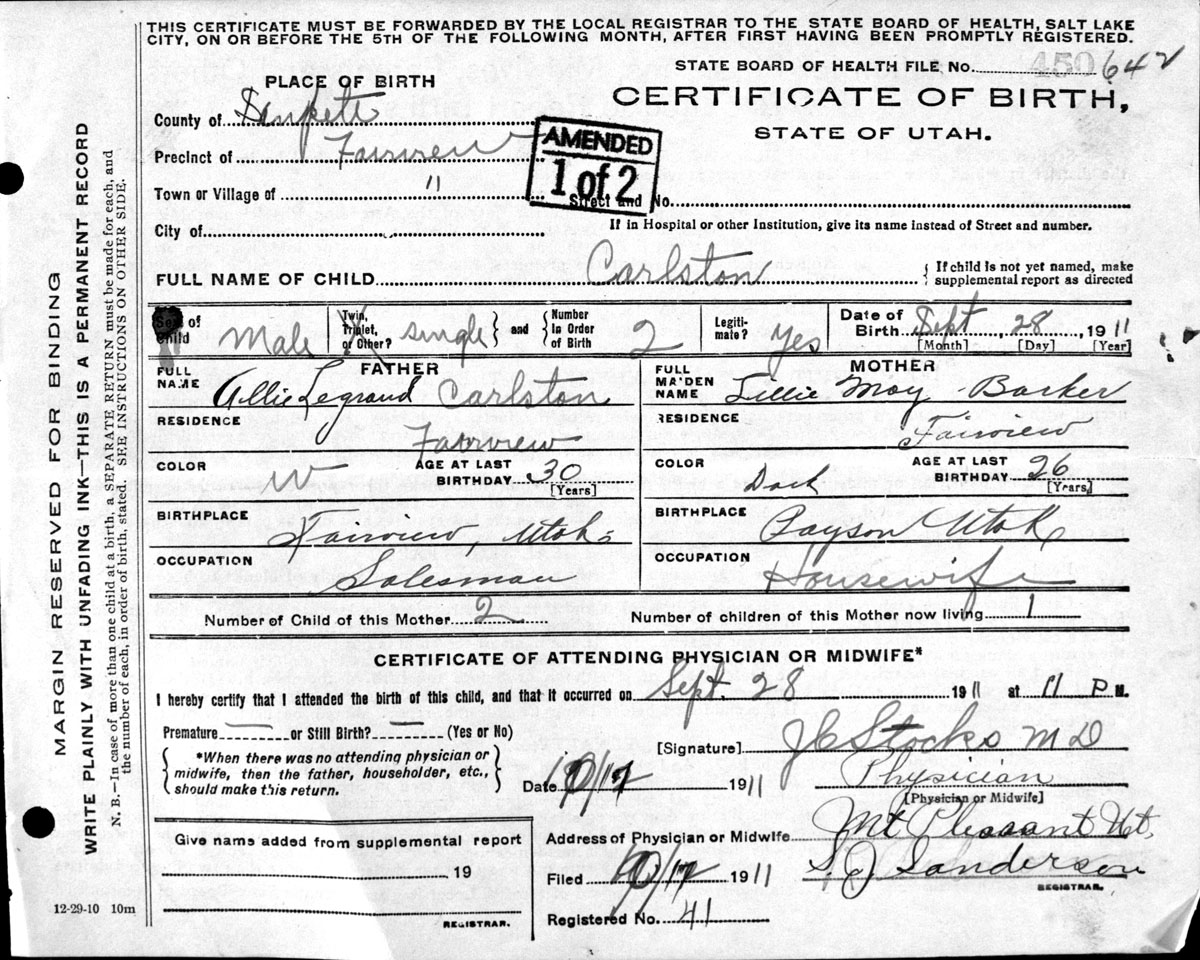 THIS CERTIFICATE MUST BE FORWARDED BY THE LOCAL REGISTRAR TO THE STATE BOARD OF HEALTH, SALT LAKE
CITY, ON OR BEFORE THE 5TH OF THE FOLLOWING MONTH, AFTER FIRST HAVING BEEN PROMPTLY REGISTERED.
STATE BOARD OF HEALTH FILE No. 450 642
PLACE OF BIRTH
CERTIFICATE OF BIRTH,
STATE OF UTAH.
County of Sanpete
Precinct of Fairview
AMENDED
1 of 2
Town or Village of "
Street and No.
City of
If in Hospital or other Institution, give its name instead of Street and number.
FULL NAME OF CHILD Carlston
{ If child is not yet named, make
supplemental report as directed
Sex of Child Male
Twin, Triplet, or Other? single } and { Number In Order of Birth 2
Legiti- mate? Yes
Date of Birth Sept 28, 1911
[Month] [Day] [Year]
FATHER
FULL NAME Allie Legrand Carlston
RESIDENCE Fairview
COLOR W
AGE AT LAST BIRTHDAY 30 [Years]
BIRTHPLACE Fairview, Utah
OCCUPATION Salesman
MOTHER
FULL MAIDEN NAME Lillie May Barker
RESIDENCE Fairview
COLOR
AGE AT LAST BIRTHDAY 26 [Years]
BIRTHPLACE Payson Utah
OCCUPATION Housewife
Number of Child of this Mother 2
Number of children of this Mother now living 1
CERTIFICATE OF ATTENDING PHYSICIAN OR MIDWIFE*
I hereby certify that I attended the birth of this child, and that it occurred on Sept. 28 1911 at 11 P M.
Premature — or Still Birth? — (Yes or No)
{ *When there was no attending physician or
midwife, then the father, householder, etc.,
should make this return. }
[Signature] J C Stocks M D
Physician
[Physician or Midwife]
Date 10/12 1911
Address of Physician or Midwife Mt Pleasant Ut.
Filed 10/12 1911
S. J. Sanderson
REGISTRAR.
Registered No. 41
Give name added from supplemental report
19
REGISTRAR.
12-29-10 10m
MARGIN RESERVED FOR BINDING
WRITE PLAINLY WITH UNFADING INK—THIS IS A PERMANENT RECORD
N. B.—In case of more than one child at a birth, a SEPARATE RETURN must be made for each, and
the number of each, in order of birth, stated. SEE INSTRUCTIONS ON OTHER SIDE.